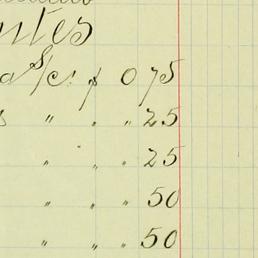 ntes
a S/c. p 0 75
s " " " 25
" " " 25
" " " 50
" " " 50